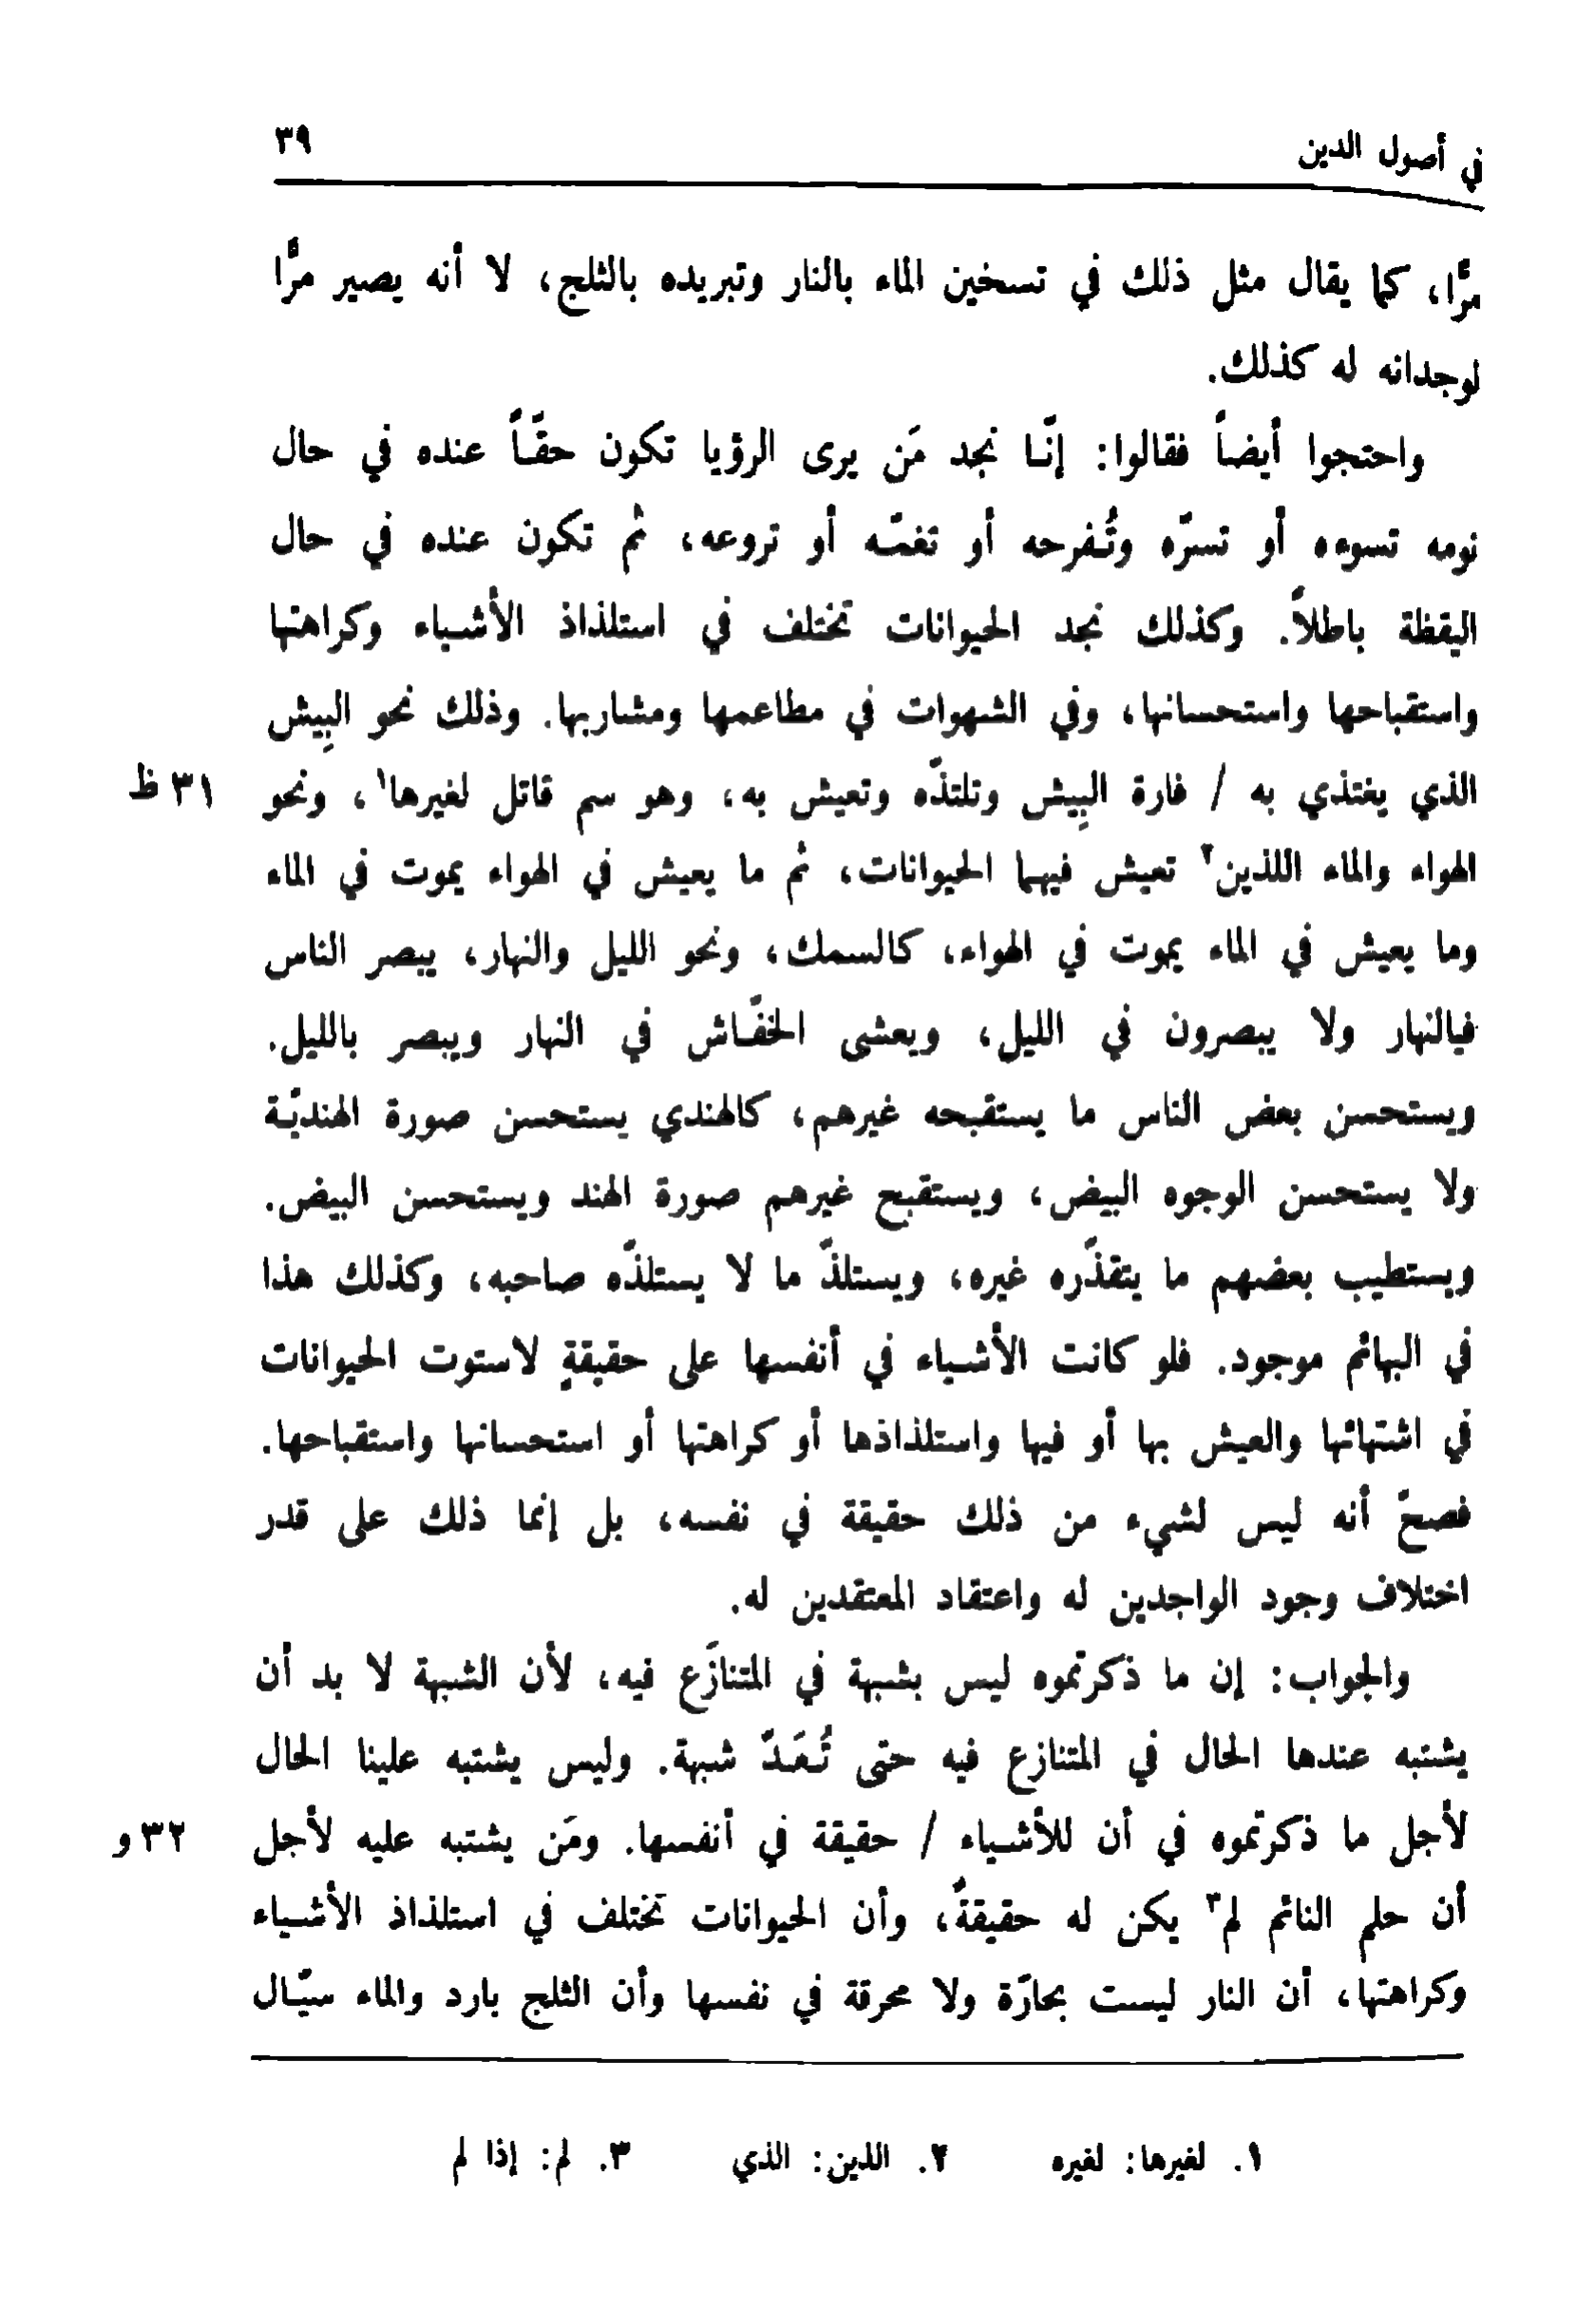 في أصول الدين ٣٩
مرًّا، كما يقال مثل ذلك في تسخين الماء بالنار وتبريده بالثلج، لا أنه يصير مرًّا
لوجدانه له كذلك.
واحتجوا أيضاً فقالوا: إنّا نجد مَن يرى الرؤيا تكون حقّاً عنده في حال
نومه تسوءه أو تسرّه وتُفرحه أو تغمّه أو تروعه، ثم تكون عنده في حال
اليقظة باطلاً. وكذلك نجد الحيوانات تختلف في استلذاذ الأشياء وكراهتها
واستقباحها واستحسانها، وفي الشهوات في مطاعمها ومشاربها. وذلك نحو البِيش
الذي يغتذي به / فارة البِيش وتلتذّه وتعيش به، وهو سم قاتل لغيرها١، ونحو ٣١ ظ
الهواء والماء اللذين٢ تعيش فيهما الحيوانات، ثم ما يعيش في الهواء يموت في الماء
وما يعيش في الماء يموت في الهواء، كالسمك، ونحو الليل والنهار، يبصر الناس
فيالنهار ولا يبصرون في الليل، ويعشى الخفّاش في النهار ويبصر بالليل.
ويستحسن بعض الناس ما يستقبحه غيرهم، كالهندي يستحسن صورة الهنديّة
ولا يستحسن الوجوه البيض، ويستقبح غيرهم صورة الهند ويستحسن البيض.
ويستطيب بعضهم ما يتقذّره غيره، ويستلذّ ما لا يستلذّه صاحبه، وكذلك هذا
في البهائم موجود. فلو كانت الأشياء في أنفسها على حقيقةٍ لاستوت الحيوانات
في اشتهائها والعيش بها أو فيها واستلذاذها أو كراهتها أو استحسانها واستقباحها.
فصحّ أنه ليس لشيء من ذلك حقيقة في نفسه، بل إنما ذلك على قدر
اختلاف وجود الواجدين له واعتقاد المعتقدين له.
والجواب: إن ما ذكرتموه ليس بشبهة في المتنازَع فيه، لأن الشبهة لا بد أن
يشتبه عندها الحال في المتنازع فيه حتى تُعَدّ شبهة. وليس يشتبه علينا الحال
لأجل ما ذكرتموه في أن للأشياء / حقيقة في أنفسها. ومَن يشتبه عليه لأجل ٣٢ و
أن حلم النائم لم٣ يكن له حقيقةٌ، وأن الحيوانات تختلف في استلذاذ الأشياء
وكراهتها، أن النار ليست بحارّة ولا محرقة في نفسها وأن الثلج بارد والماء سيّال
١. لغيرها: لغيره ٢. اللذين: الذي ٣. لم: إذا لم